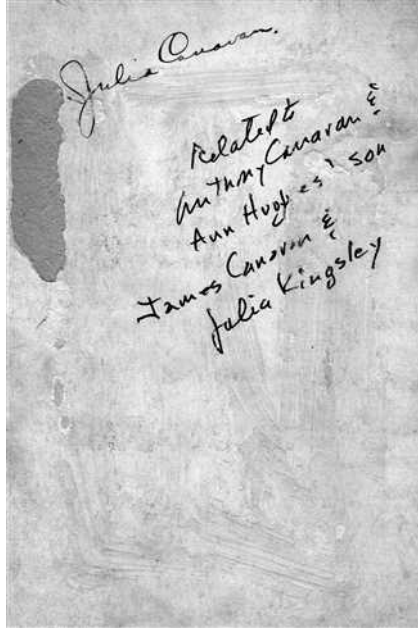 Julia Canavan.
Related to
Anthony Canavan &
Ann Hughes' son
James Canavan &
Julia Kingsley